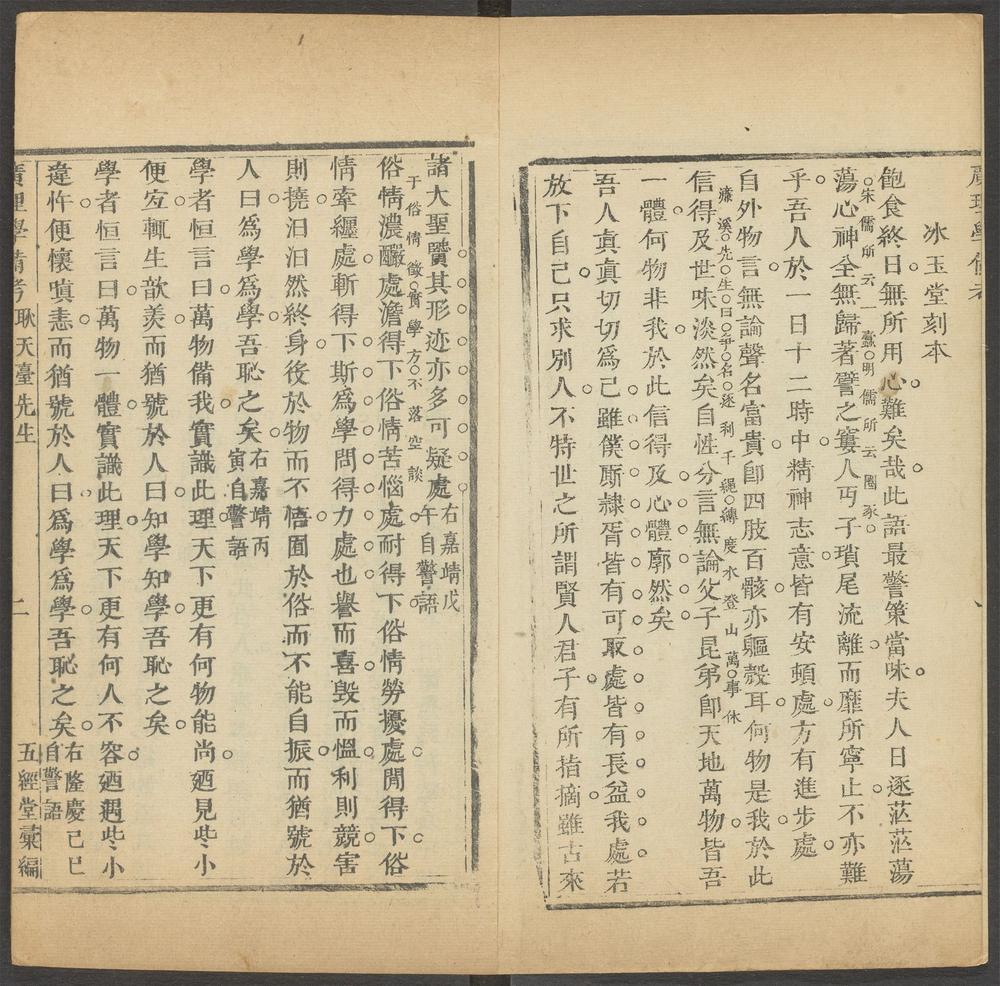 廣理學備考
冰玉堂刻本
飽食終日無所用心難矣哉此語最警策當味夫人日逐茫茫蕩
宋儒所云一蠹明儒所云圈豕
蕩心神全無歸著譬之窶人丐子瑣尾流離而靡所寧止不亦難
乎吾人於一日十二時中精神志意皆有安頓處方有進步處
自外物言無論聲名富貴卽四肢百骸亦軀殼耳何物是我於此
濂溪先生曰爭名逐利千繩縛度水登山萬事休
信得及世味淡然矣自性分言無論父子昆弟卽天地萬物皆吾
一體何物非我於此信得及心體廓然矣
吾人眞眞切切爲己雖僕厮隸胥皆有可取處皆有長益我處若
放下自己只求別人不特世之所謂賢人君子有所指摘雖古來
諸大聖賢其形迹亦多可疑處右嘉靖戊午自警語
于俗情徵實學方不落空談
俗情濃釅處澹得下俗情苦惱處耐得下俗情勞擾處閒得下俗
情牽纏處斬得下斯爲學問得力處也譽而喜毀而慍利則競害
則撓汨汨然終身後於物而不悟囿於俗而不能自振而猶號於
人曰爲學爲學吾恥之矣右嘉靖丙寅自警語
學者恒言曰萬物備我實識此理天下更有何物能尚廼見些小
便宐輒生歆羨而猶號於人曰知學知學吾恥之矣
學者恒言曰萬物一體實識此理天下更有何人不容廼遇些小
違忤便懷嗔恚而猶號於人曰爲學爲學吾恥之矣右隆慶己巳自警語
廣理學備考 耿天臺先生 二 五經堂彙編